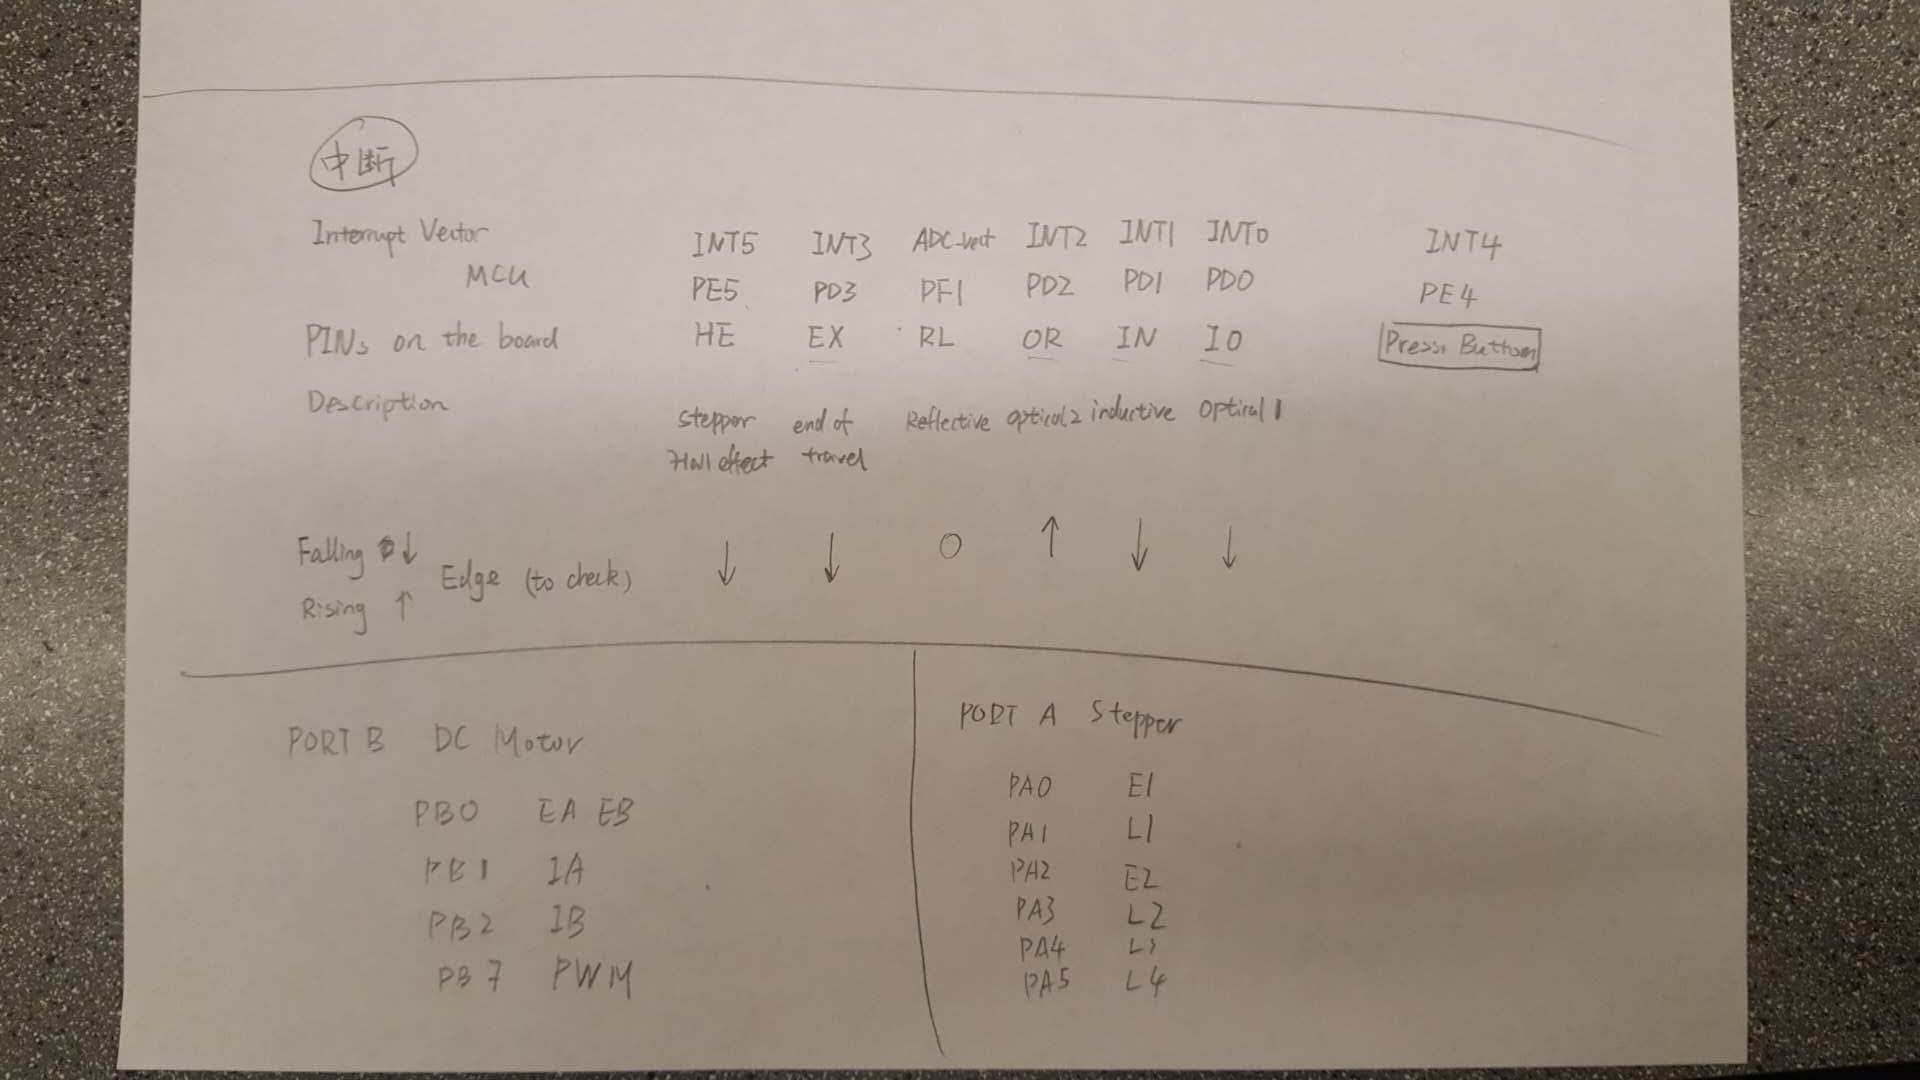 中断
Interrupt Vector INT5 INT3 ADC-vect INT2 INT1 INT0 INT4
MCU PE5 PD3 PF1 PD2 PD1 PD0 PE4
PINs on the board HE EX RL OR IN IO Press Buttom
Description stepper end of Reflective optical2 inductive optical 1
Hall effect travel
Falling ↓ ↓ ↓ O ↑ ↓ ↓
Edge (to check)
Rising ↑
PORT B DC Motor
PB0 EA EB
PB1 IA
PB2 IB
PB7 PWM
PORT A Stepper
PA0 E1
PA1 L1
PA2 E2
PA3 L2
PA4
PA5 L4